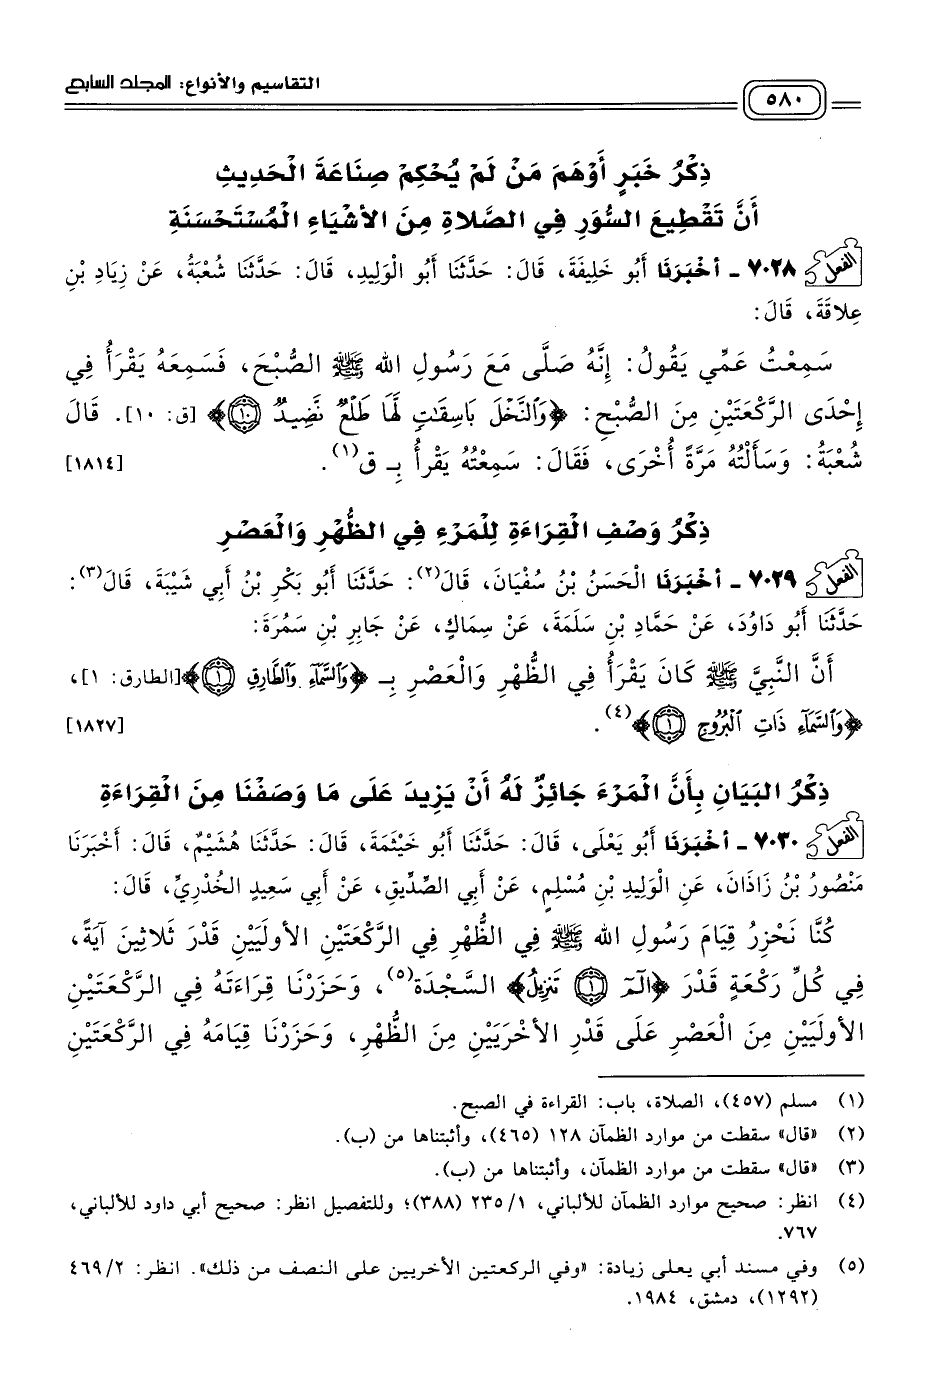 التقاسيم والأنواع: المجلد السابع
٥٨٠
ذِكْرُ خَبَرٍ أَوْهَمَ مَنْ لَمْ يُحْكِمْ صِنَاعَةَ الْحَدِيثِ
أَنَّ تَقْطِيعَ السُّوَرِ فِي الصَّلاةِ مِنَ الأَشْيَاءِ الْمُسْتَحْسَنَةِ
الفعل ٧٠٢٨ - أَخْبَرَنَا أَبُو خَلِيفَةَ، قَالَ: حَدَّثَنَا أَبُو الْوَلِيدِ، قَالَ: حَدَّثَنَا شُعْبَةُ، عَنْ زِيَادِ بْنِ
عِلاقَةَ، قَالَ:
سَمِعْتُ عَمِّي يَقُولُ: إِنَّهُ صَلَّى مَعَ رَسُولِ الله ﷺ الصُّبْحَ، فَسَمِعَهُ يَقْرَأُ فِي
إِحْدَى الرَّكْعَتَيْنِ مِنَ الصُّبْحِ: ﴿وَٱلنَّخْلَ بَاسِقَٰتٍ لَّهَا طَلْعٌ نَّضِيدٌ ۝١٠﴾ [ق: ١٠]. قَالَ
شُعْبَةُ: وَسَأَلْتُهُ مَرَّةً أُخْرَى، فَقَالَ: سَمِعْتُهُ يَقْرَأُ بِـ ق(١). [١٨١٤]
ذِكْرُ وَصْفِ الْقِرَاءَةِ لِلْمَرْءِ فِي الظُّهْرِ وَالْعَصْرِ
الفعل ٧٠٢٩ - أَخْبَرَنَا الْحَسَنُ بْنُ سُفْيَانَ، قَالَ(٢): حَدَّثَنَا أَبُو بَكْرِ بْنُ أَبِي شَيْبَةَ، قَالَ(٣):
حَدَّثَنَا أَبُو دَاوُدَ، عَنْ حَمَّادِ بْنِ سَلَمَةَ، عَنْ سِمَاكٍ، عَنْ جَابِرِ بْنِ سَمُرَةَ:
أَنَّ النَّبِيَّ ﷺ كَانَ يَقْرَأُ فِي الظُّهْرِ وَالْعَصْرِ بِـ ﴿وَٱلسَّمَآءِ وَٱلطَّارِقِ ۝١﴾[الطارق: ١]،
﴿وَٱلسَّمَآءِ ذَاتِ ٱلْبُرُوجِ ۝١﴾(٤). [١٨٢٧]
ذِكْرُ البَيَانِ بِأَنَّ الْمَرْءَ جَائِزٌ لَهُ أَنْ يَزِيدَ عَلَى مَا وَصَفْنَا مِنَ الْقِرَاءَةِ
الفعل ٧٠٣٠ - أَخْبَرَنَا أَبُو يَعْلَى، قَالَ: حَدَّثَنَا أَبُو خَيْثَمَةَ، قَالَ: حَدَّثَنَا هُشَيْمٌ، قَالَ: أَخْبَرَنَا
مَنْصُورُ بْنُ زَاذَانَ، عَنِ الْوَلِيدِ بْنِ مُسْلِمٍ، عَنْ أَبِي الصِّدِّيقِ، عَنْ أَبِي سَعِيدٍ الْخُدْرِيِّ، قَالَ:
كُنَّا نَحْزِرُ قِيَامَ رَسُولِ الله ﷺ فِي الظُّهْرِ فِي الرَّكْعَتَيْنِ الأُولَيَيْنِ قَدْرَ ثَلاثِينَ آيَةً،
فِي كُلِّ رَكْعَةٍ قَدْرَ ﴿الٓمٓ ۝١ تَنزِيلُ﴾ السَّجْدَةَ(٥)، وَحَزَرْنَا قِرَاءَتَهُ فِي الرَّكْعَتَيْنِ
الأُولَيَيْنِ مِنَ الْعَصْرِ عَلَى قَدْرِ الأُخْرَيَيْنِ مِنَ الظُّهْرِ، وَحَزَرْنَا قِيَامَهُ فِي الرَّكْعَتَيْنِ
(١) مسلم (٤٥٧)، الصلاة، باب: القراءة في الصبح.
(٢) «قال» سقطت من موارد الظمآن ١٢٨ (٤٦٥)، وأثبتناها من (ب).
(٣) «قال» سقطت من موارد الظمآن، وأثبتناها من (ب).
(٤) انظر: صحيح موارد الظمآن للألباني، ١/ ٢٣٥ (٣٨٨)؛ وللتفصيل انظر: صحيح أبي داود للألباني،
٧٦٧.
(٥) وفي مسند أبي يعلى زيادة: «وفي الركعتين الأخريين على النصف من ذلك». انظر: ٢/ ٤٦٩
(١٢٩٢)، دمشق، ١٩٨٤.